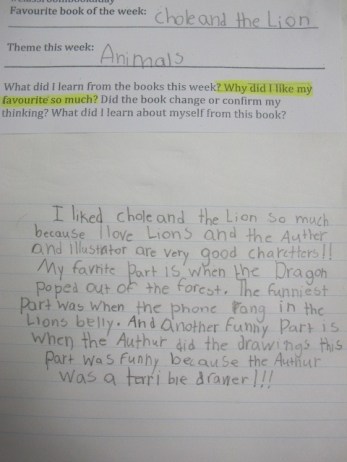 Favourite book of the week: Chole and the Lion
Theme this week: Animals
What did I learn from the books this week? Why did I like my
favourite so much? Did the book change or confirm my
thinking? What did I learn about myself from this book?
I liked chole and the Lion so much
because I love Lions and the Auther
and Illustator are very good charetters!!
My favrite Part is when the Dragon
Poped out of the forest. The funniest
Part was when the phone rang in the
Lions belly. And another Funny Part is
When the Authur did the drawings this
Part was Funny because the Authur
was a terri ble drawer!!!